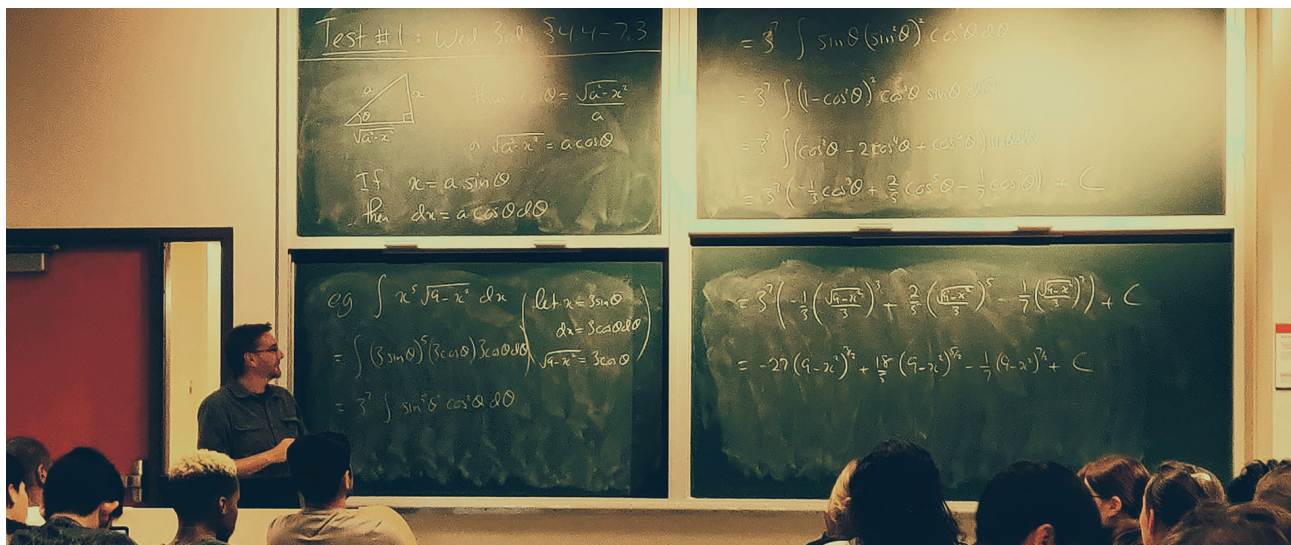 Test #1: Wed 3rd §4.4-7.3
a
x
θ
√(a²-x²)
then cosθ = √(a²-x²)/a
or √(a²-x²) = a cosθ
If x = a sinθ
then dx = a cosθ dθ
eg ∫ x⁵ √(9-x²) dx
(let x = 3 sinθ
dx = 3 cosθ dθ
√(9-x²) = 3 cosθ)
= ∫ (3 sinθ)⁵ (3 cosθ) 3 cosθ dθ
= 3⁷ ∫ sin⁵θ cos²θ dθ
= 3⁷ ∫ sinθ (sin²θ)² cos²θ dθ
= 3⁷ ∫ (1-cos²θ)² cos²θ sinθ dθ
= 3⁷ ∫ (cos²θ - 2cos⁴θ + cos⁶θ) sinθ dθ
= 3⁷ (-1/3 cos³θ + 2/5 cos⁵θ - 1/7 cos⁷θ) + C
= 3⁷ (-1/3 (√(9-x²)/3)³ + 2/5 (√(9-x²)/3)⁵ - 1/7 (√(9-x²)/3)⁷) + C
= -27 (9-x²)^(3/2) + 18/5 (9-x²)^(5/2) - 1/7 (9-x²)^(7/2) + C